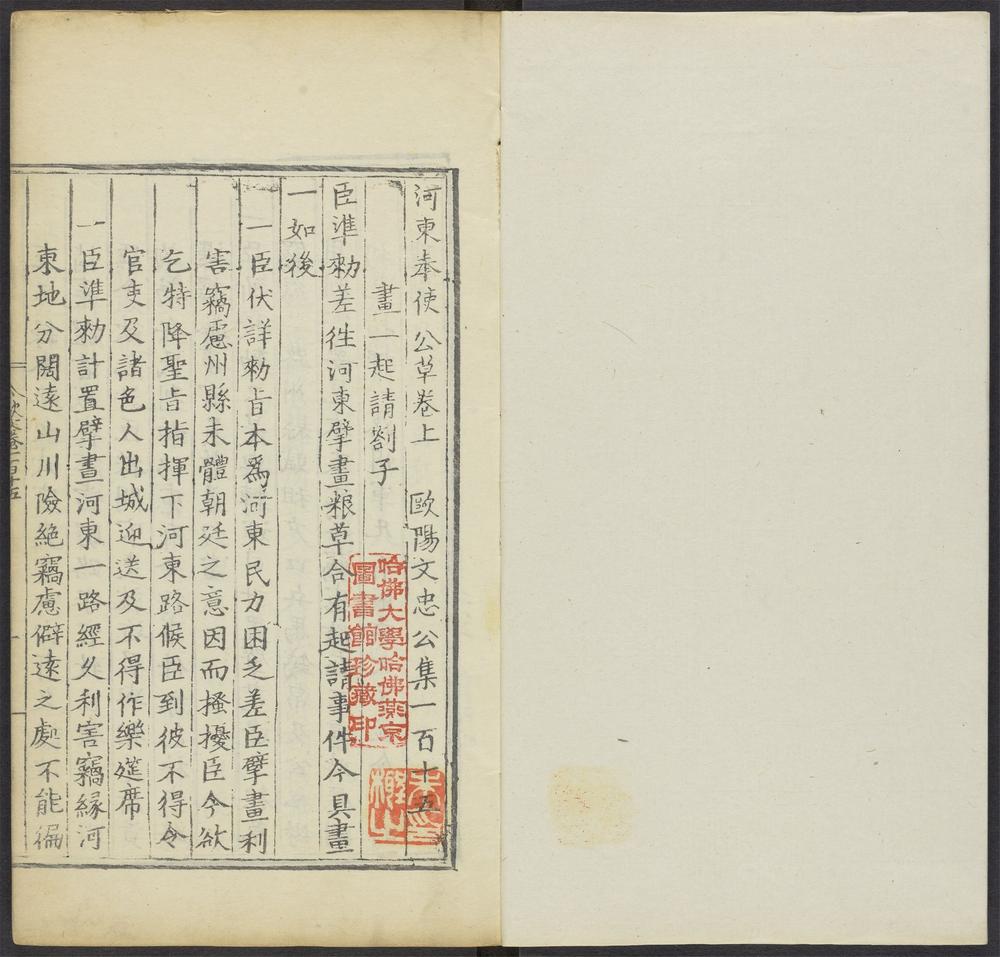 河東奉使公草卷上　歐陽文忠公集一百十五
畫一起請劄子
臣準勑差徃河東擘畫粮草合有起請事件今具畫
一如後
一臣伏詳勑旨本爲河東民力困乏差臣擘畫利
害竊慮州縣未體朝廷之意因而搔擾臣今欲
乞特降聖旨指揮下河東路候臣到彼不得令
官吏及諸色人出城迎送及不得作樂筵席
一臣準勑計置擘畫河東一路經久利害竊緣河
東地分闊遠山川險絶竊慮僻遠之處不能徧
哈佛大學哈佛燕京
圖書館珍藏印